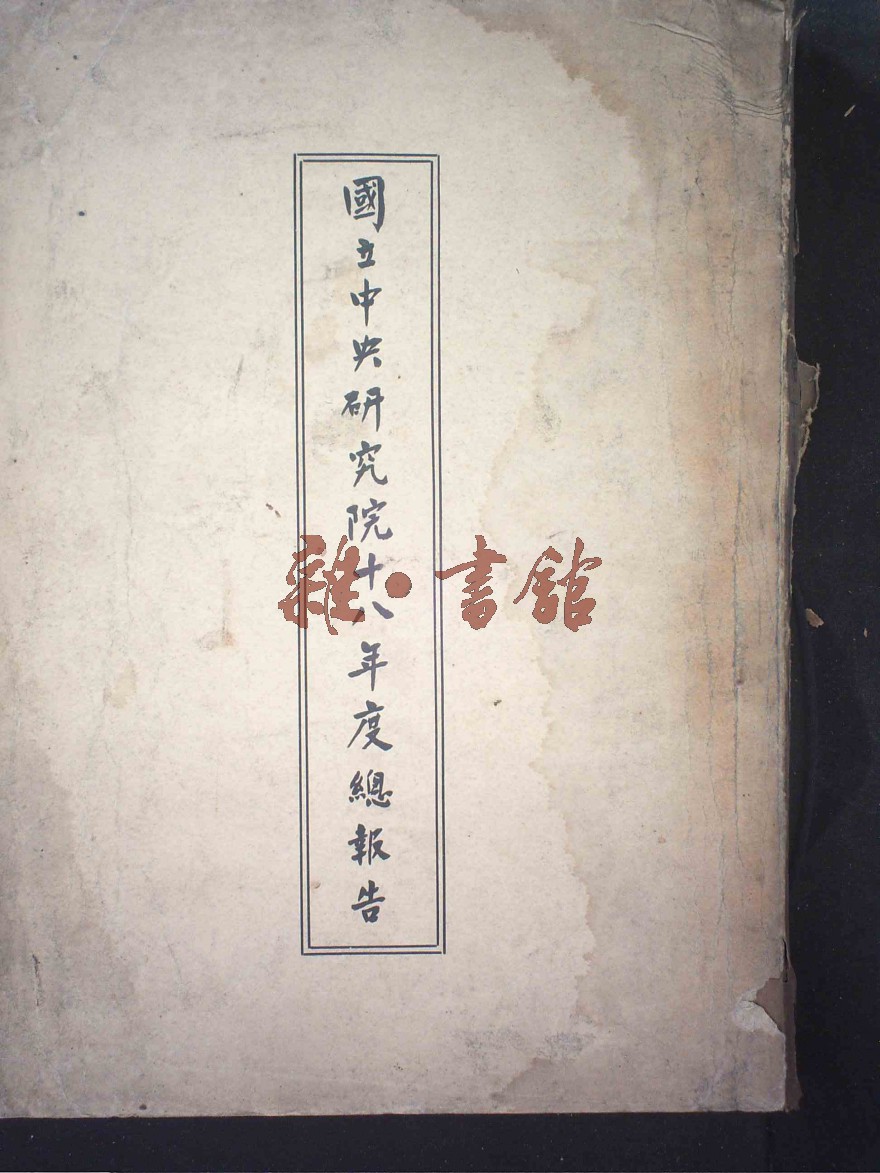 國立中央研究院十八年度總報告
雜·書館